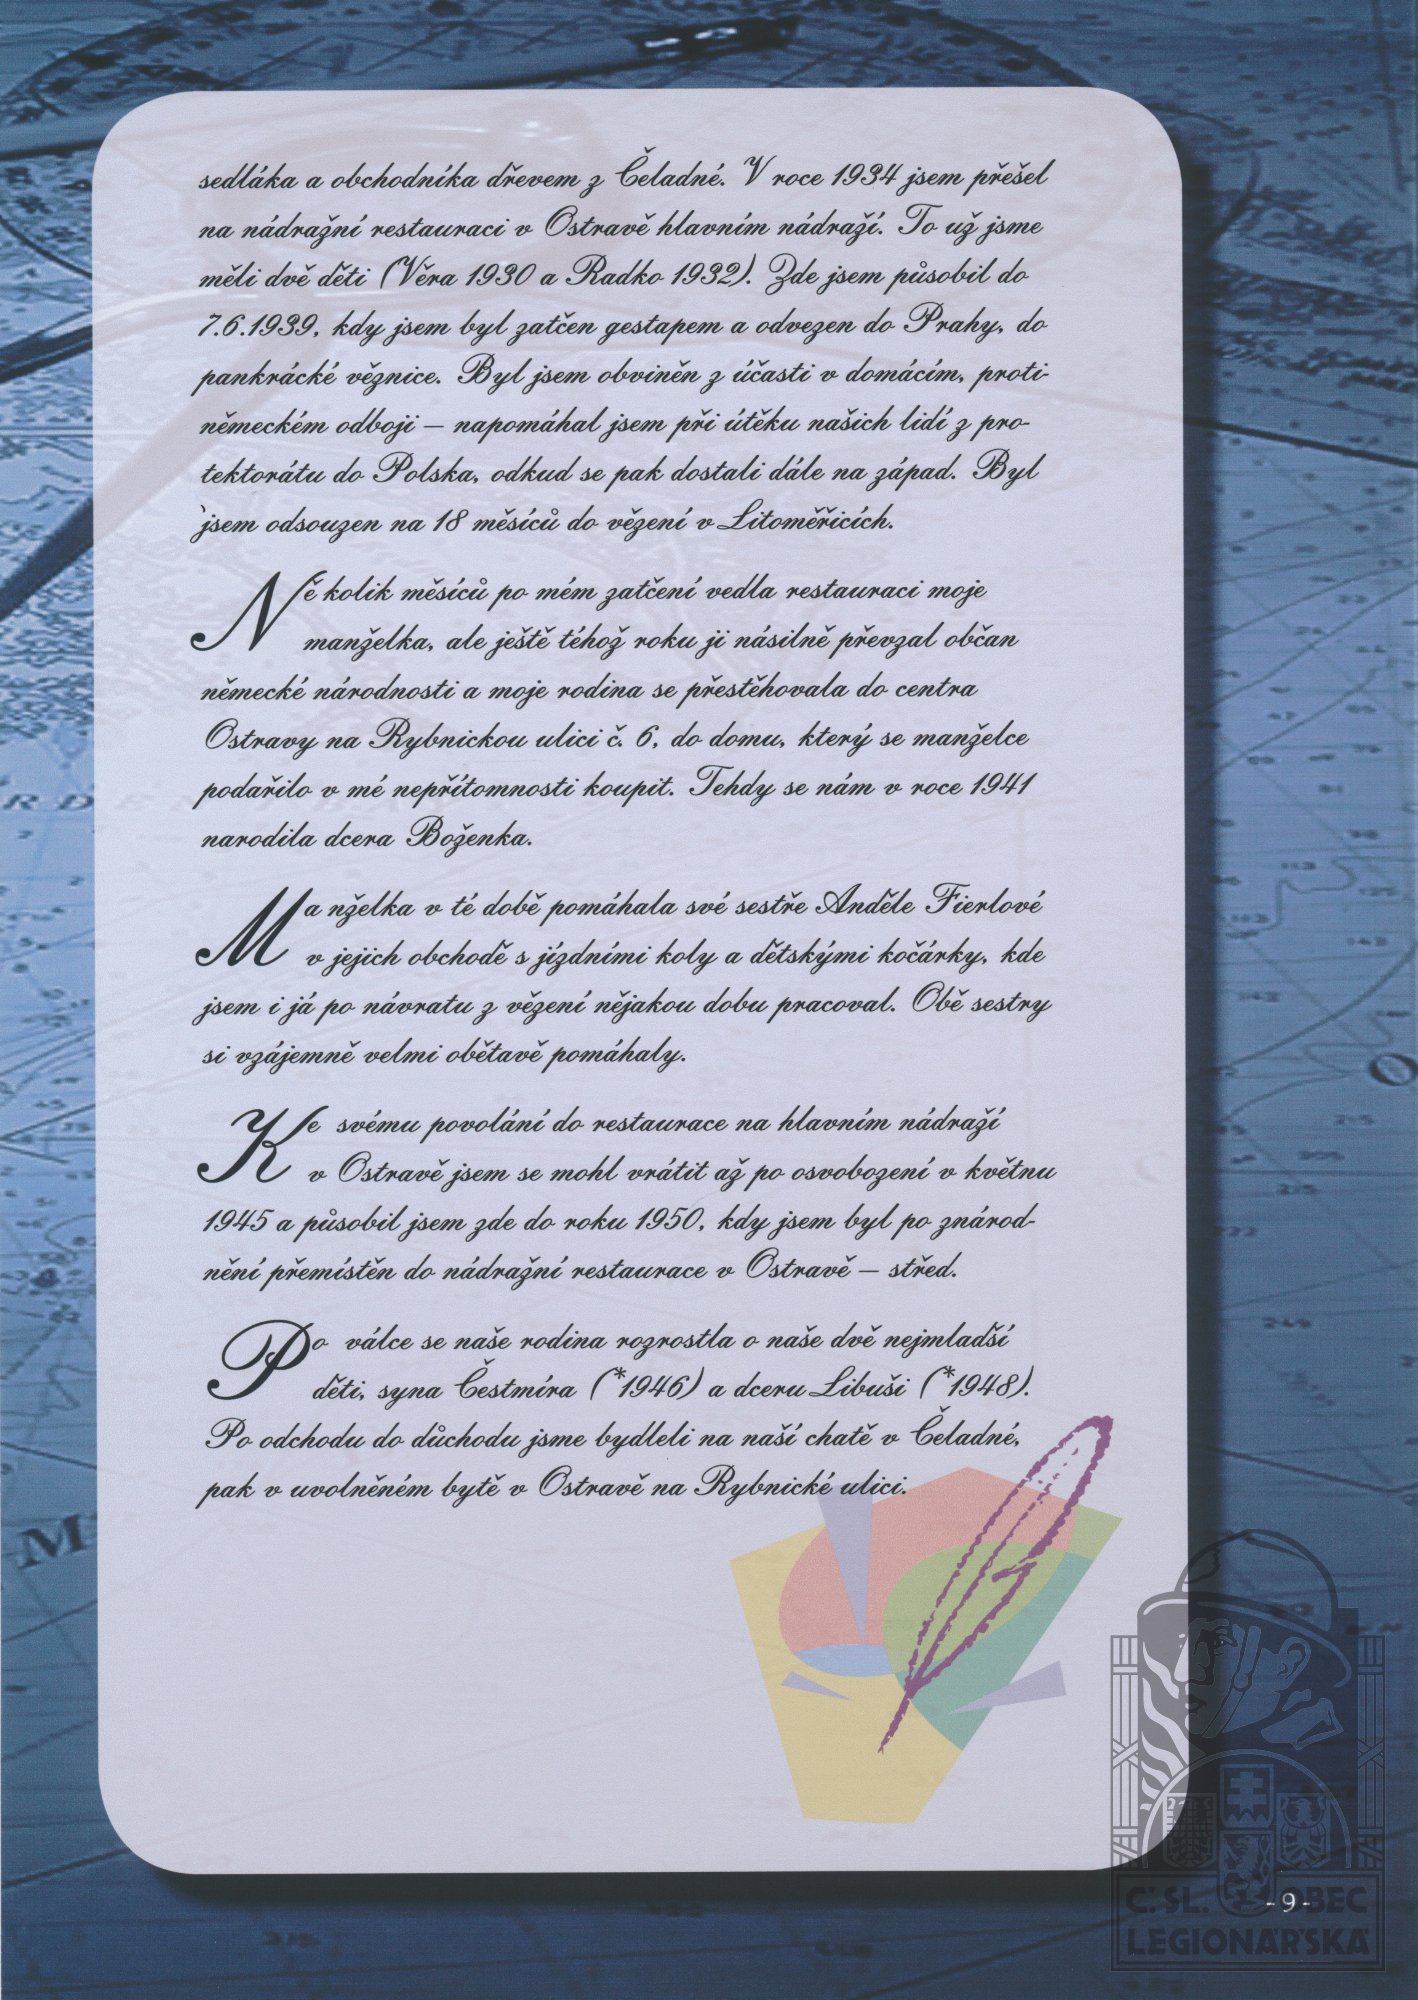 sedláka a obchodníka dřevem z Čeladné. V roce 1934 jsem přešel
na nádražní restauraci v Ostravě hlavním nádraží. To už jsme
měli dvě děti (Věra 1930 a Radko 1932). Zde jsem působil do
7.6.1939, kdy jsem byl zatčen gestapem a odvezen do Prahy, do
pankrácké věznice. Byl jsem obviněn z účasti v domácím, proti-
německém odboji – napomáhal jsem při útěku našich lidí z pro-
tektorátu do Polska, odkud se pak dostali dále na západ. Byl
jsem odsouzen na 18 měsíců do vězení v Litoměřicích.
Ně kolik měsíců po mém zatčení vedla restauraci moje
manželka, ale ještě téhož roku ji násilně převzal občan
německé národnosti a moje rodina se přestěhovala do centra
Ostravy na Rybnickou ulici č. 6, do domu, který se manželce
podařilo v mé nepřítomnosti koupit. Tehdy se nám v roce 1941
narodila dcera Boženka.
Ma nželka v té době pomáhala své sestře Anděle Fierlové
v jejich obchodě s jízdními koly a dětskými kočárky, kde
jsem i já po návratu z vězení nějakou dobu pracoval. Obě sestry
si vzájemně velmi obětavě pomáhaly.
Ke svému povolání do restaurace na hlavním nádraží
v Ostravě jsem se mohl vrátit až po osvobození v květnu
1945 a působil jsem zde do roku 1950, kdy jsem byl po znárod-
nění přemístěn do nádražní restaurace v Ostravě – střed.
Po válce se naše rodina rozrostla o naše dvě nejmladší
děti, syna Čestmíra (*1946) a dceru Libuši (*1948).
Po odchodu do důchodu jsme bydleli na naší chatě v Čeladné,
pak v uvolněném bytě v Ostravě na Rybnické ulici.
-9-
Č.SL. OBEC
LEGIONÁŘSKÁ